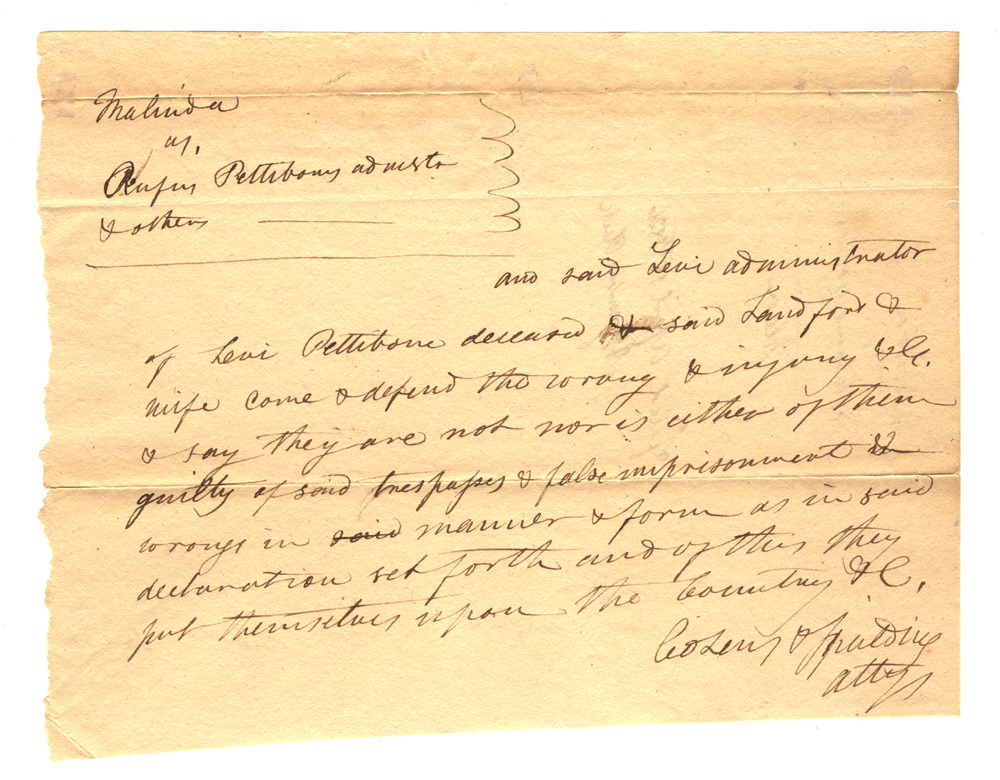 Malinda
vs.
Rufus Pettibones admistr
& others
and said Levi administrator
of Levi Pettibone deceased & said Landford &
wife come & defend the wrong & injury &C.
& say they are not nor is either of them
guilty of said trespasses & false imprisonment &
wrongs in said manner & form as in said
declaration set forth and of this they
put themselves upon the Country &C.
Cozens & Spalding
attys